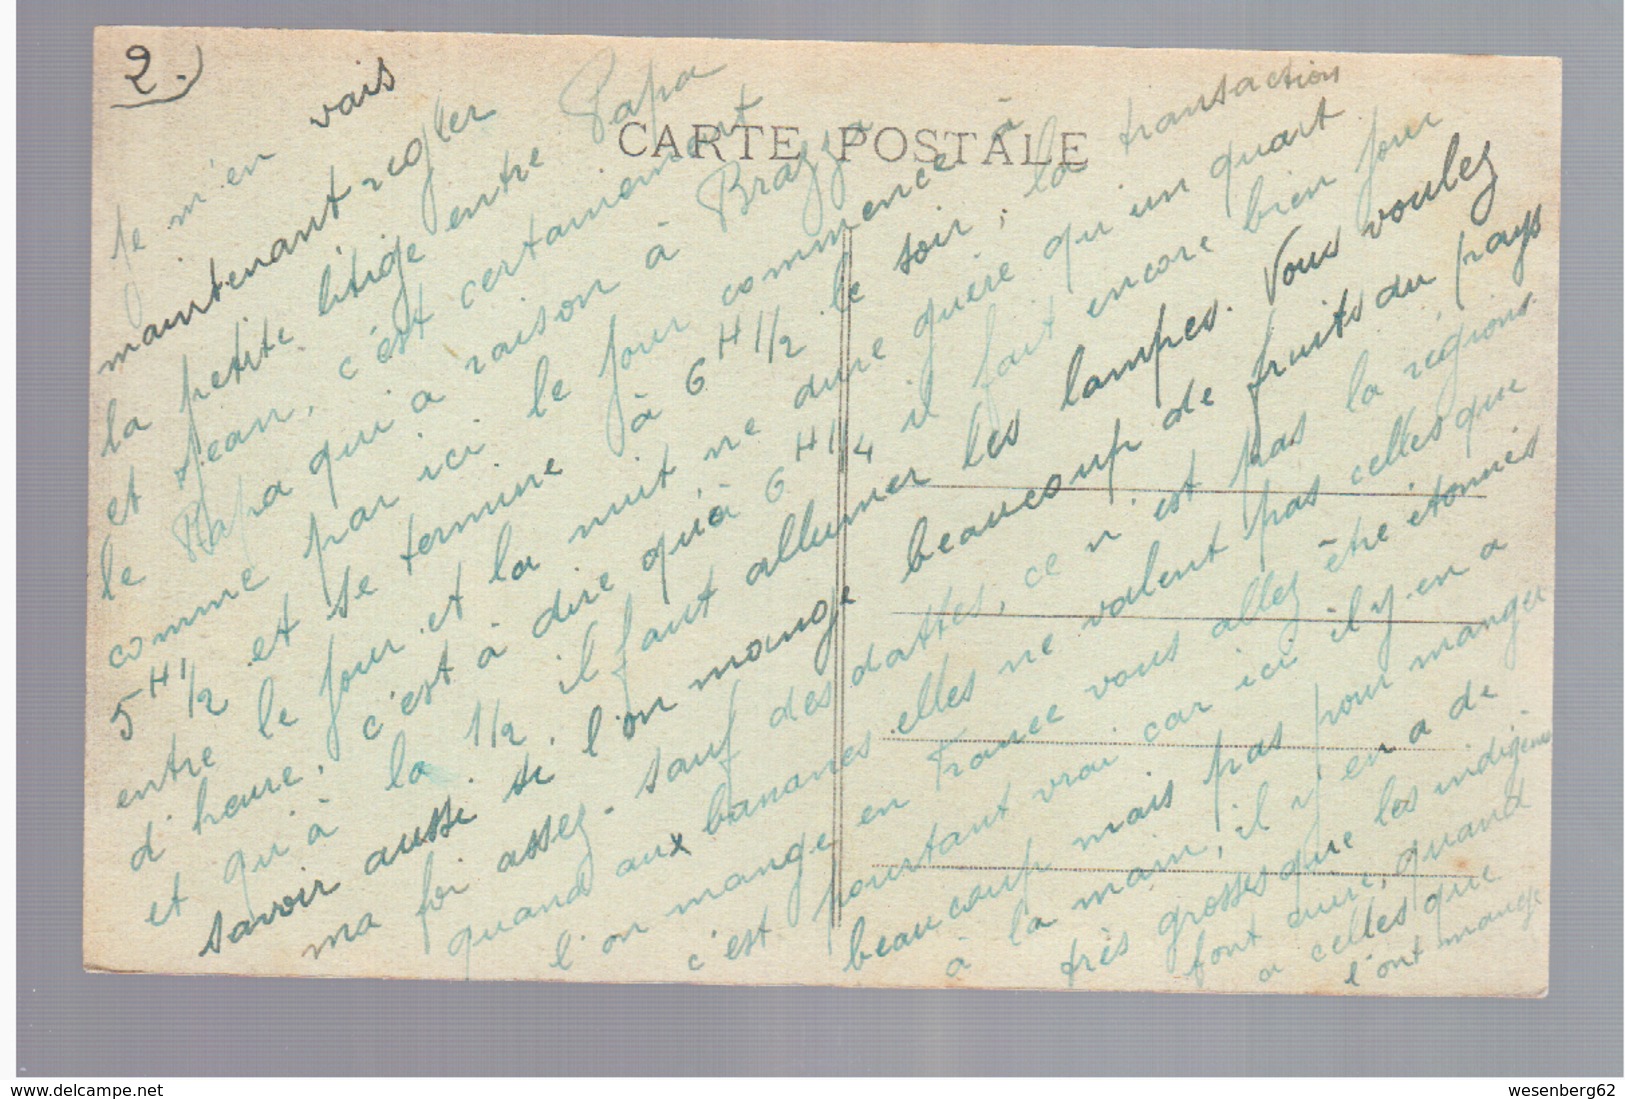 2.
CARTE POSTALE
Je m'en vais
maintenant regler
la petite litige entre Papa
et Jean, c'est certainement
le Papa qui a raison à Brazza
comme par ici le jour commence à
5 H 1/2 et se termine à 6 H 1/2 le soir, la transaction
entre le jour et la nuit ne dure guère qu'un quart
d'heure, c'est à dire qu'à 6 H 1/4 il fait encore bien jour
et qu'à la 1/2 il faut allumer les lampes. Vous voulez
savoir aussi si l'on mange beaucoup de fruits du pays
ma foi assez. sauf des dattes, ce n'est pas la régions
quand aux bananes elles ne valent pas celles que
l'on mange en France vous allez être étonnés
c'est pourtant vrai car ici il y en a
beaucoup mais pas pour manger
à la main, il y en a de
très grosses que les indigènes
font cuire, quand
a celles que
l'ont mange
www.delcampe.net
wesenberg62